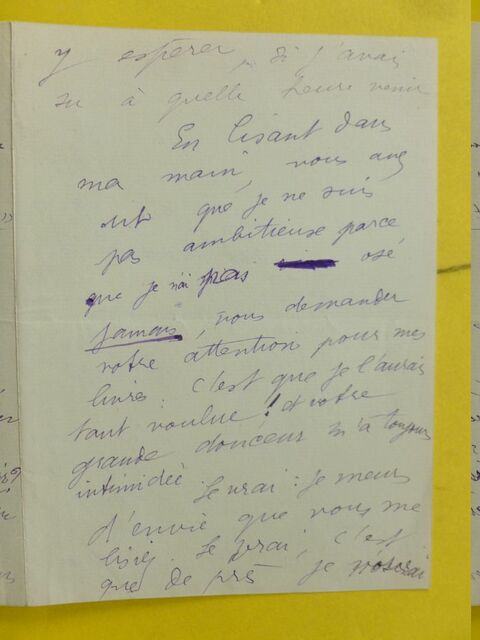 y espérer, si j'avais
su à quelle heure venir
En lisant dans
ma main, vous avez
dit que je ne suis
pas ambitieuse parce
que je n'ai pas osé
jamais, vous demander
votre attention pour mes
livres. c'est que je l'aurais
tant voulue! et votre
grande douceur m'a toujours
intimidée Le vrai : je meurs
d'envie que vous me
lisiez. Le vrai, c'est
que de près je n'oserai